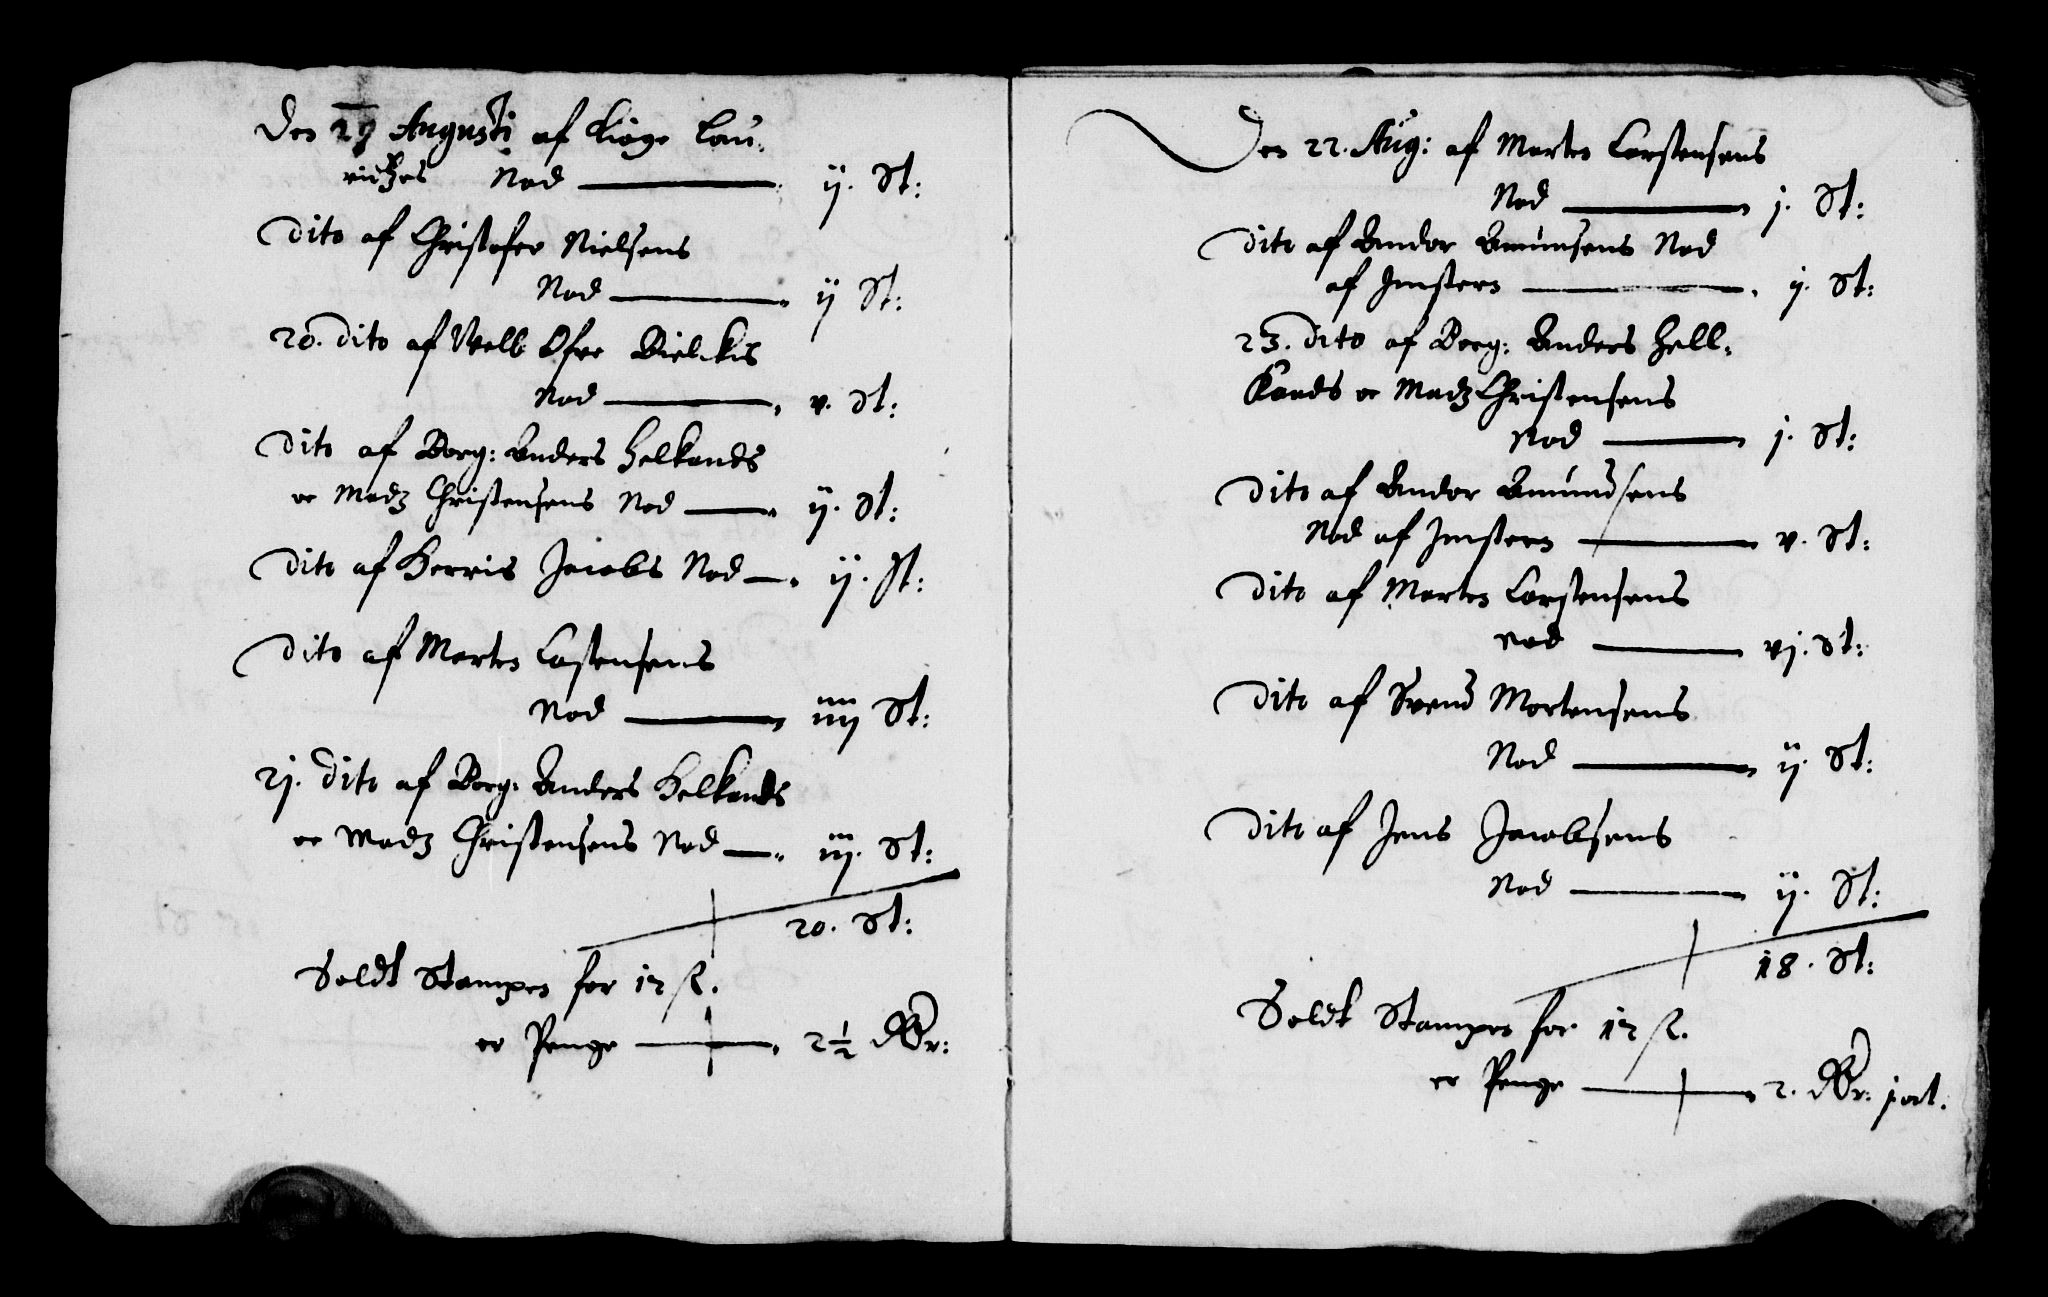 Den 19 Augusti af Kiøge Lau-
ridtzes Nod ij. St:
Dito af Christofer Nielsens
Nod ij St:
20. Dito af Welb Ofve Bielckis
Nod v. St:
Dito af Borg: Anders Helkands
oc Madz Christensens Nod ij. St:
Dito af Herris Jacobs Nod ij. St:
Dito af Morten Lastensens
Nod iiij St:
21. Dito af Borg: Anders Helkands
oc Madz Christensens Nod iij. St:
20. St:
Soldt Stampen for 12 ß.
er Penge 2½ Rdr:
Den 22. Aug: af Morten Carstensens
Nod j. St:
Dito af Andor Amunsens Nod
af Jmstern ij. St:
23. Dito af Borg: Anders Hell-
Kands oc Madz Christensens
Nod j. St:
Dito af Andor Amundsens
Nod af Jmstern v. St:
Dito af Morten Carstensens
Nod vj. St:
Dito af Svend Mortensens
Nod ij. St:
Dito af Jens Jacobsens
Nod ij. St:
18. St:
Soldt Stampen for 12 ß.
er Penge 2. Rdr: j ort.